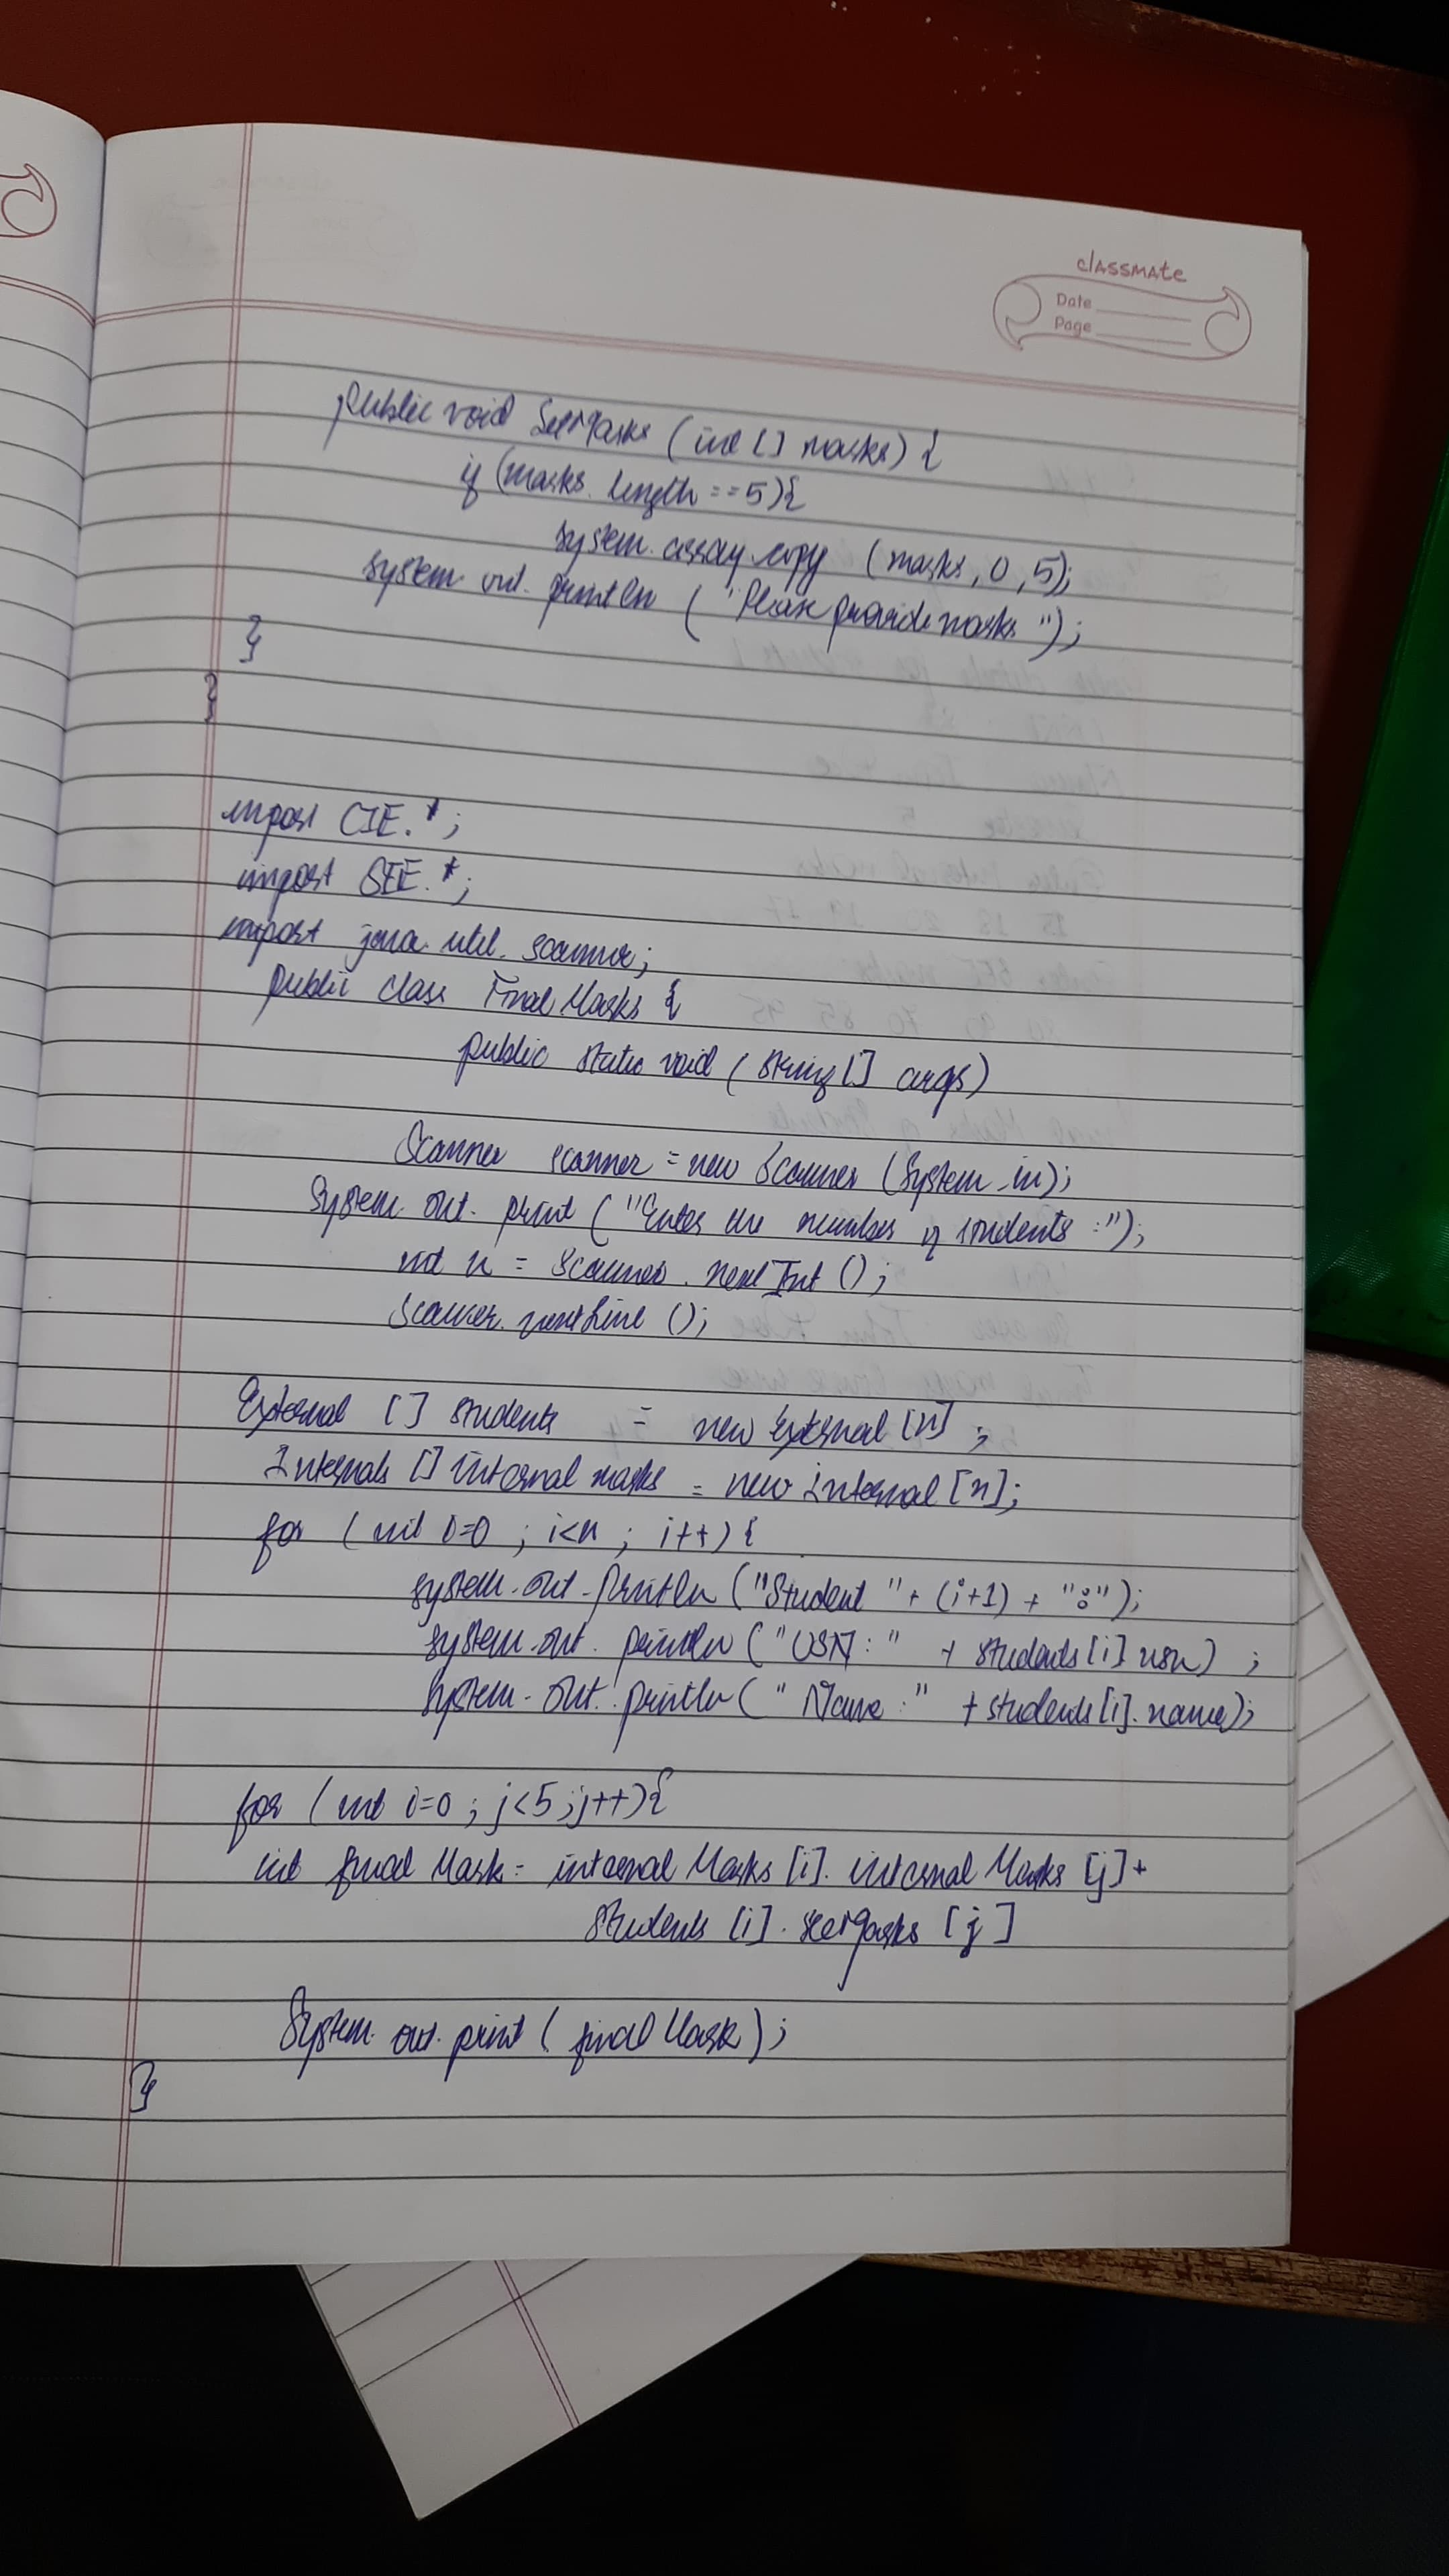 classmate
Date
Page
public void SeeMarks (int [] marks) {
if (marks. length == 5){
system. array copy (marks, 0, 5);
system out. println ( "Please provide marks ");
}
}
import CIE.*;
import SEE.*;
import java. util. scanner;
public class Final Marks {
public static void ( String [] args)
Scanner scanner = new Scanner (System.in);
System. out. print ( "Enter the number of students :");
int n = Scanner . next Int ();
Scanner. nextLine ();
External [] students = new External [n] ;
Internals [] internal marks = new internal [n];
for ( int i=0 ; i<n ; i++) {
system.out.println ("Student " + (i+1) + ":");
system.out. println ( "USN : " + students [i] usn) ;
System. out. println ( " Name : " + students [i]. name);
for ( int i=0 ; j<5 ; j++){
int final Mark = internal Marks [i]. internal Marks [j] +
students [i] . seeMarks [j]
System. out. print ( final Mark ) ;
}